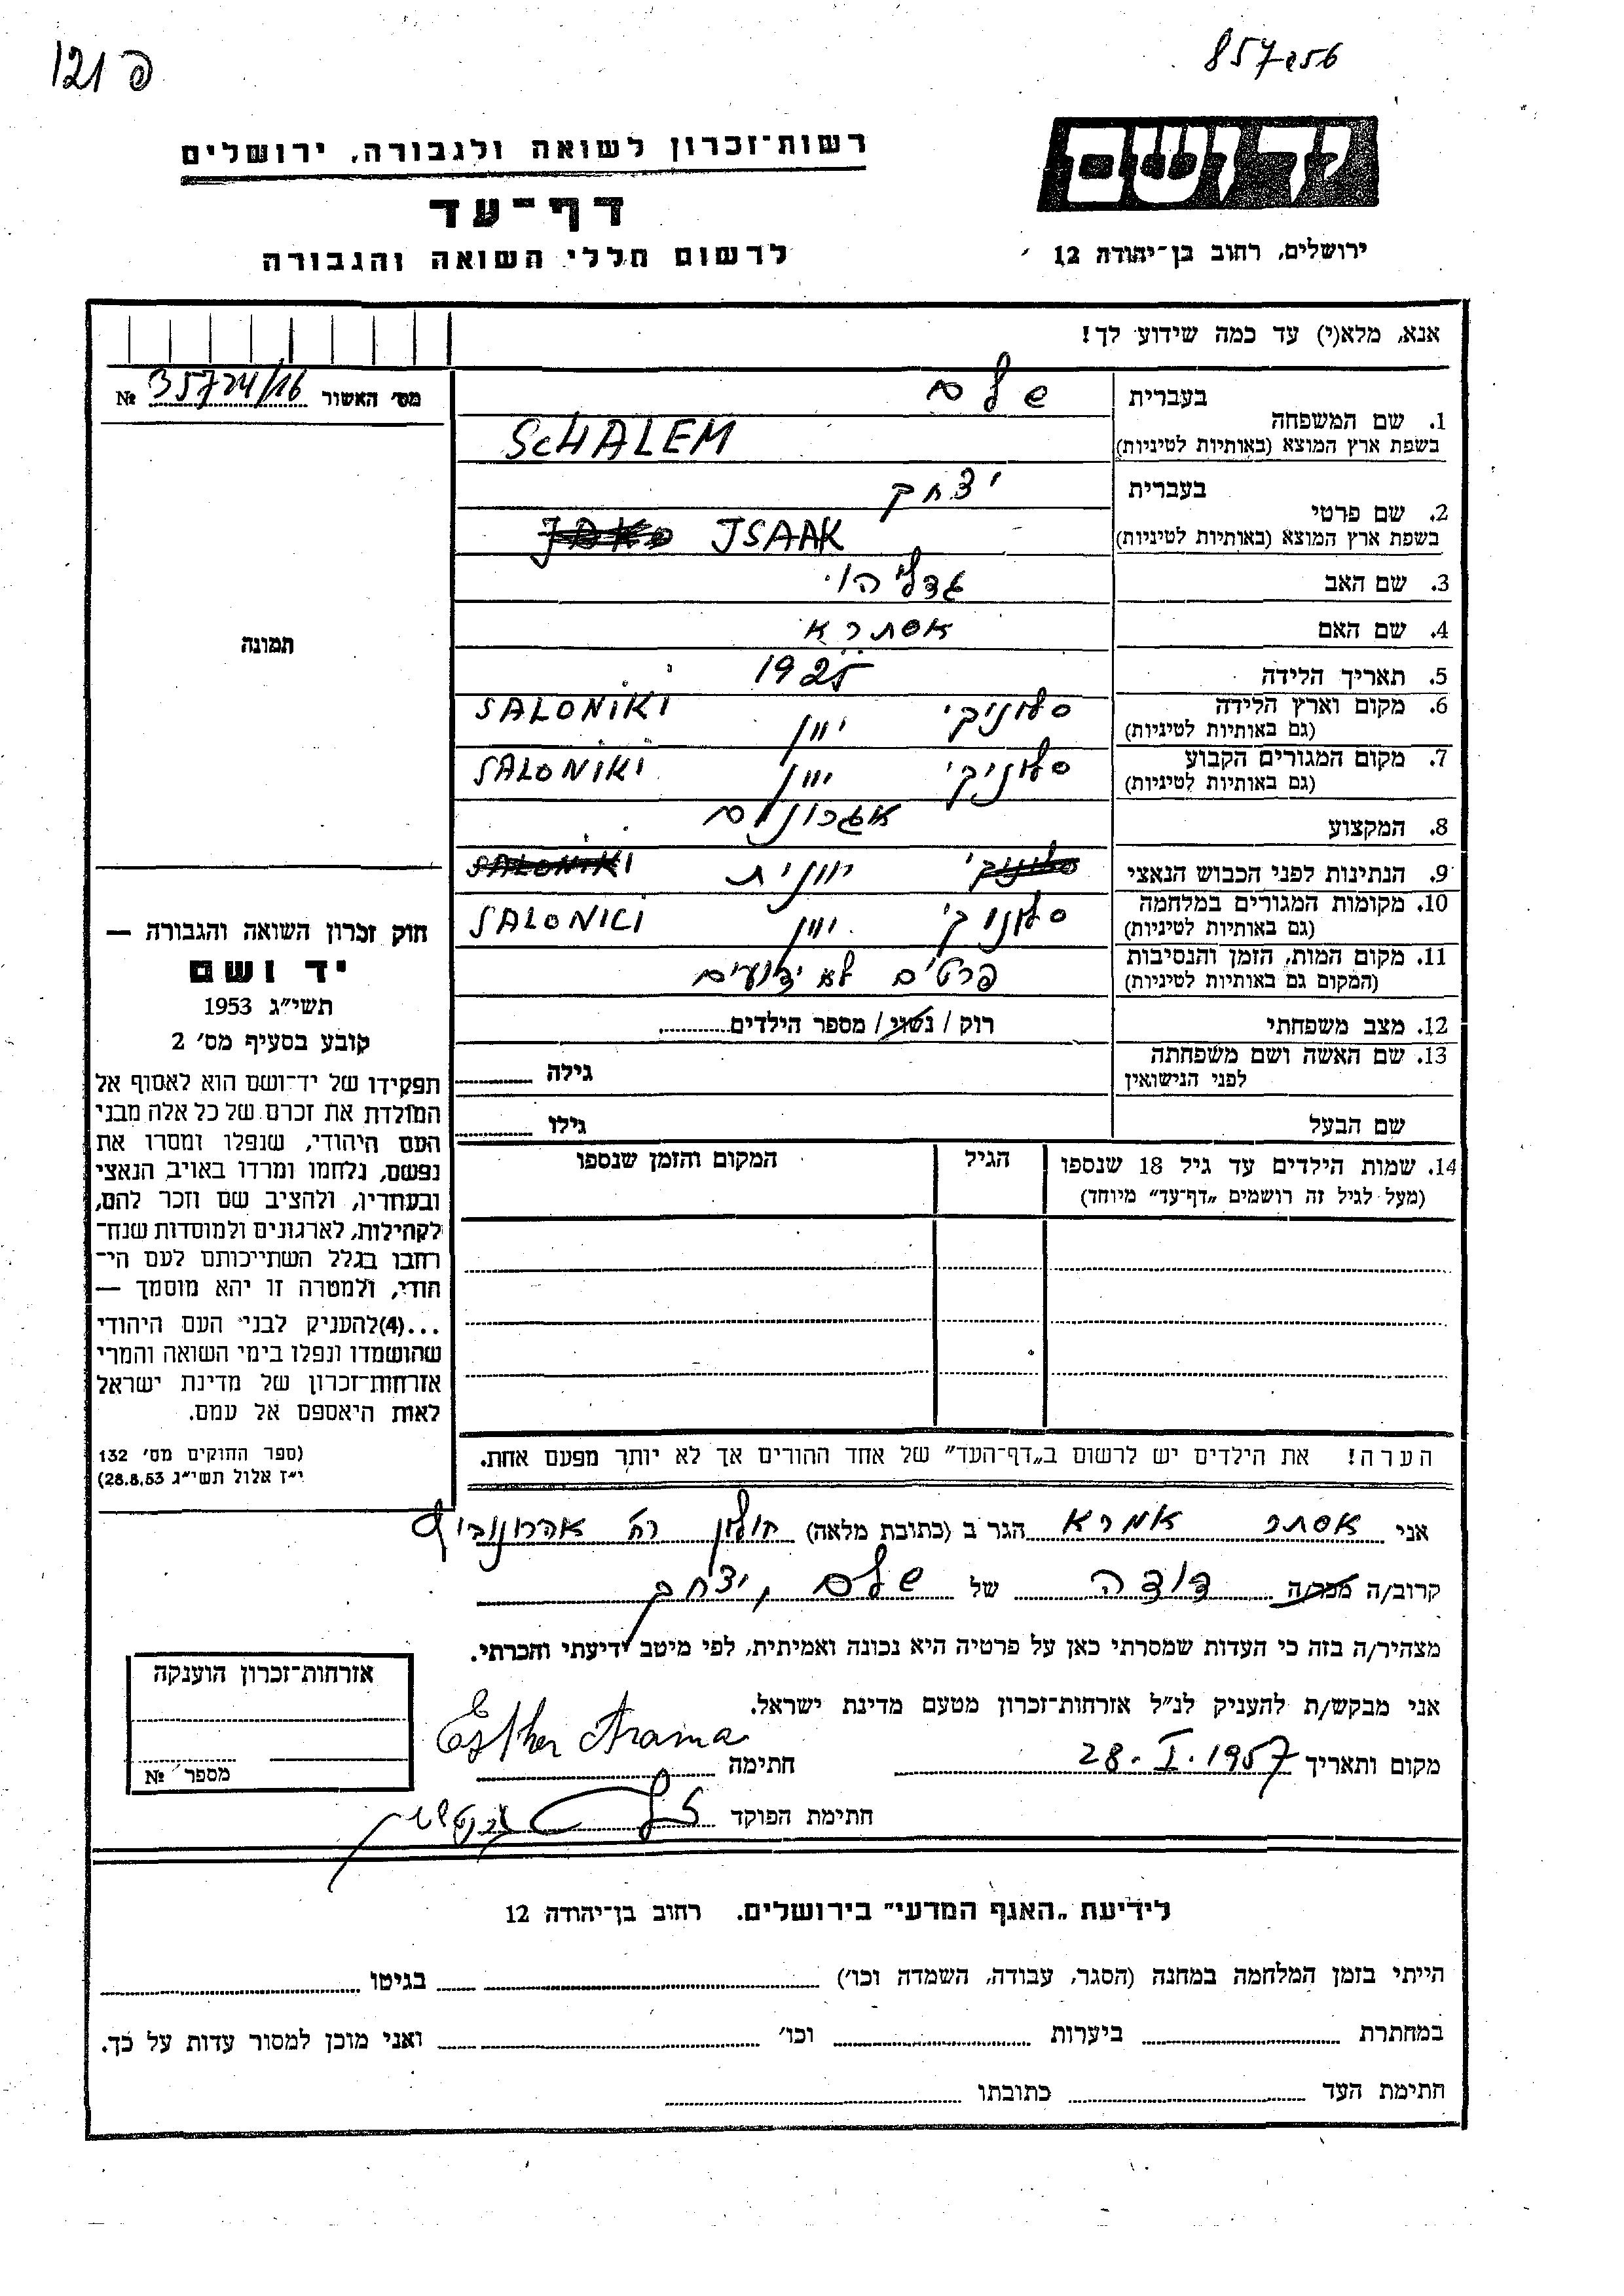 פ 121
857256
יד ושם
ירושלים, רחוב בן־יהודה 12
רשות־זכרון לשואה ולגבורה, ירושלים
דף־עד
לרשום חללי השואה והגבורה
אנא, מלא(י) עד כמה שידוע לך!
מס׳ האשור 35724/16 №
תמונה
1. שם המשפחה בעברית שלם
בשפת ארץ המוצא (באותיות לטיניות) SCHALEM
2. שם פרטי בעברית יצחק
בשפת ארץ המוצא (באותיות לטיניות) JSAAK
3. שם האב גדליהו
4. שם האם אסתרא
5. תאריך הלידה 1925
6. מקום וארץ הלידה סלוניקי יוון SALONIKI
(גם באותיות לטיניות)
7. מקום המגורים הקבוע סלוניקי יוון SALONIKI
(גם באותיות לטיניות)
8. המקצוע
9. הנתינות לפני הכבוש הנאצי סלוניקי יוונית SALONIKI
10. מקומות המגורים במלחמה סלוניקי יוון SALONICI
(גם באותיות לטיניות)
11. מקום המות, הזמן והנסיבות פרטים לא ידועים
(המקום גם באותיות לטיניות)
12. מצב משפחתי רוק / נשוי / מספר הילדים
13. שם האשה ושם משפחתה
לפני הנישואין גילה
שם הבעל גילו
14. שמות הילדים עד גיל 18 שנספו הגיל המקום והזמן שנספו
(מעל לגיל זה רושמים „דף־עד” מיוחד)
הערה! את הילדים יש לרשום ב„דף־העד” של אחד ההורים אך לא יותר מפעם אחת.
חוק זכרון השואה והגבורה —
יד ושם
תשי״ג 1953
קובע בסעיף מס׳ 2
תפקידו של יד־ושם הוא לאסוף אל
המולדת את זכרם של כל אלה מבני
העם היהודי, שנפלו ומסרו את
נפשם, נלחמו ומרדו באויב הנאצי
ובעוזריו, ולהציב שם וזכר להם,
לקהילות, לארגונים ולמוסדות שנח־
רבו בגלל השתייכותם לעם הי־
הודי, ולמטרה זו יהא מוסמך —
...(4) להעניק לבני העם היהודי
שהושמדו ונפלו בימי השואה והמרי
אזרחות־זכרון של מדינת ישראל
לאות היאספם אל עמם.
(ספר החוקים מס׳ 132
י״ז אלול תשי״ג 28.8.53)
אני אסתר הגר ב (כתובת מלאה) חולון רח׳ אהרונוביץ
קרוב/ה מכר/ה דודה של שלם, יצחק
מצהיר/ה בזה כי העדות שמסרתי כאן על פרטיה היא נכונה ואמיתית, לפי מיטב ידיעתי והכרתי.
אני מבקש/ת להעניק לנ״ל אזרחות־זכרון מטעם מדינת ישראל.
מקום ותאריך 28.I.1957 חתימה Esther Arama
חתימת הפוקד
אזרחות־זכרון הוענקה
מספר №
לידיעת „האגף המדעי” בירושלים. רחוב בן־יהודה 12
הייתי בזמן המלחמה במחנה (הסגר, עבודה, השמדה וכו׳) בגיטו
במחתרת ביערות וכו׳ ואני מוכן למסור עדות על כך.
חתימת העד כתובתו